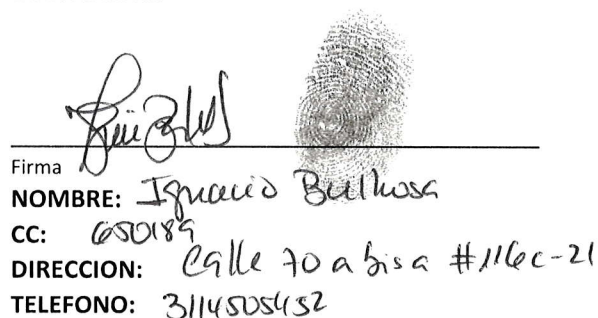 Firma
NOMBRE: Ignacio Bulhosa
CC: 650189
DIRECCION: Calle 70 a bis a #116c-21
TELEFONO: 3114505452